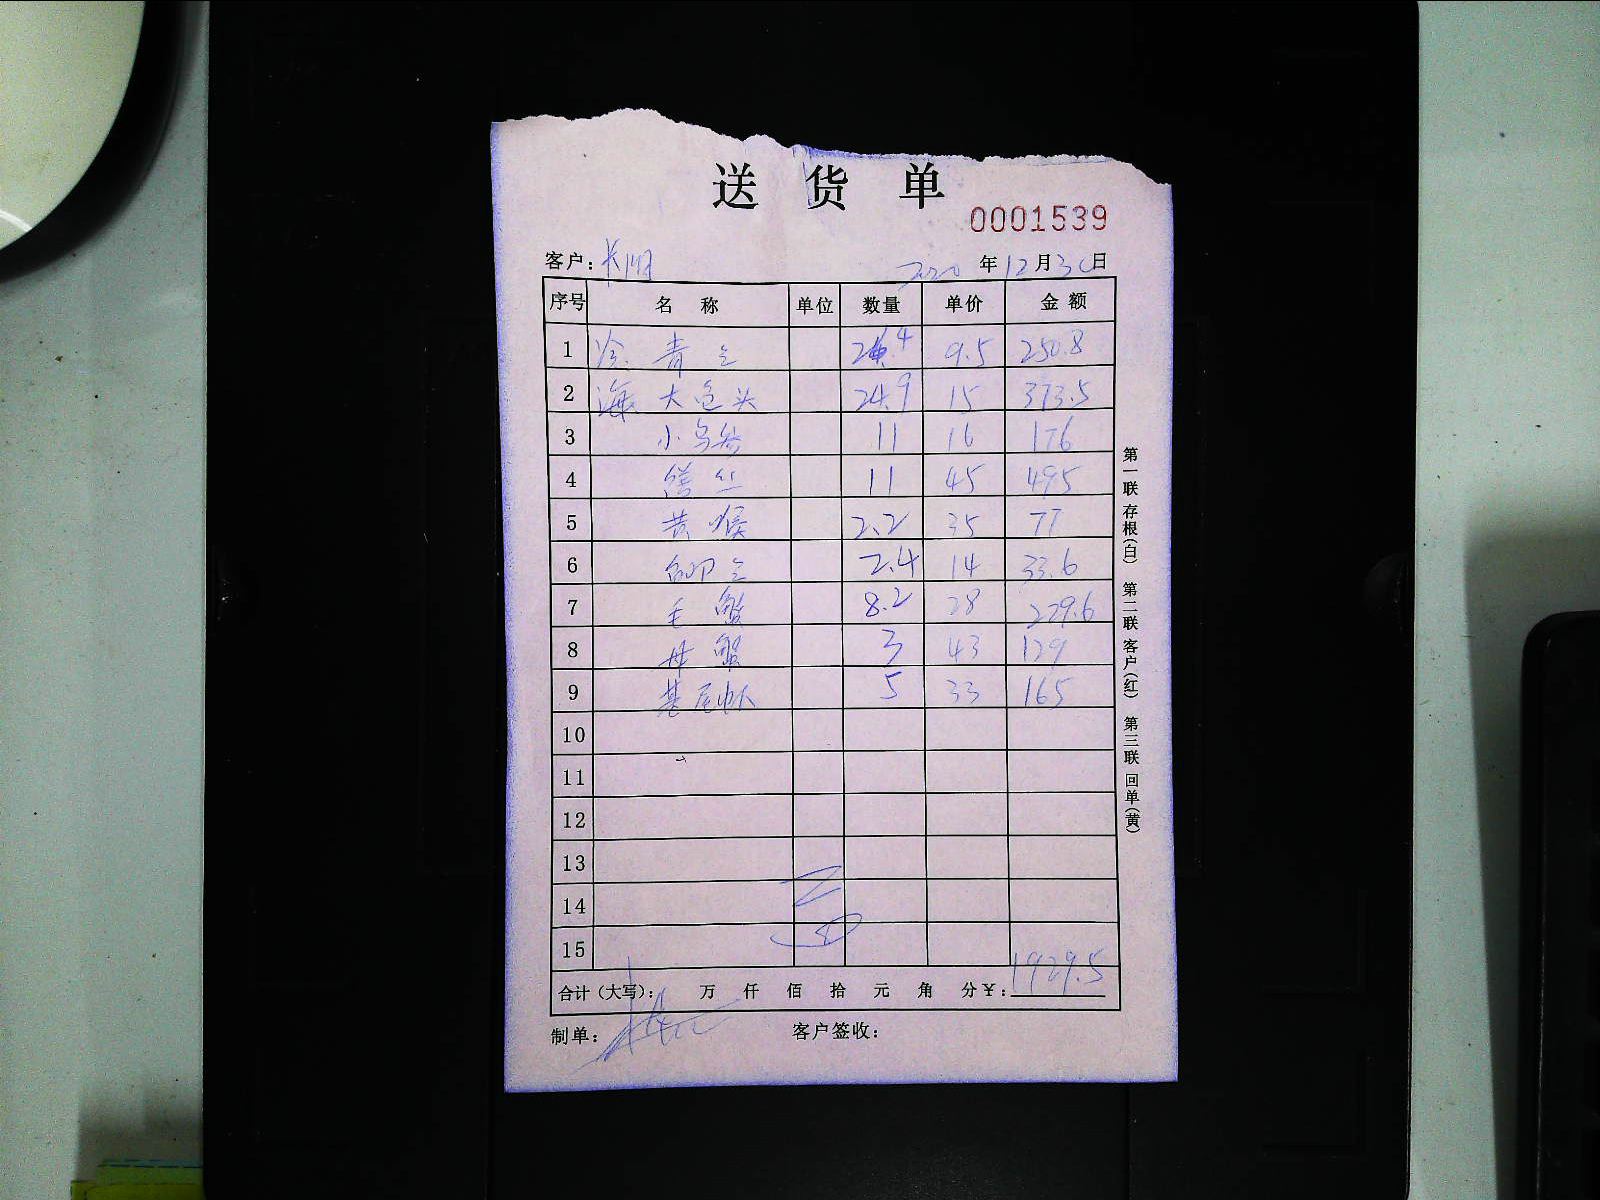 送货单
0001539
客户: 长阳 2020年12月30日
序号 名称 单位 数量 单价 金额
1 冷 青仝 26.4 9.5 250.8
2 海 大包头 24.9 15 373.5
3 小乌参 11 16 176
4 鳝丝 11 45 495
5 黄喉 2.2 35 77
6 2.4 14 33.6
7 毛蟹 8.2 28 229.6
8 丹蟹 3 43 129
9 基尾虾 5 33 165
10
11
12
13
14
15
合计(大写): 万 仟 佰 拾 元 角 分¥: 1929.5
制单: 客户签收:
第一联存根(白) 第二联客户(红) 第三联回单(黄)